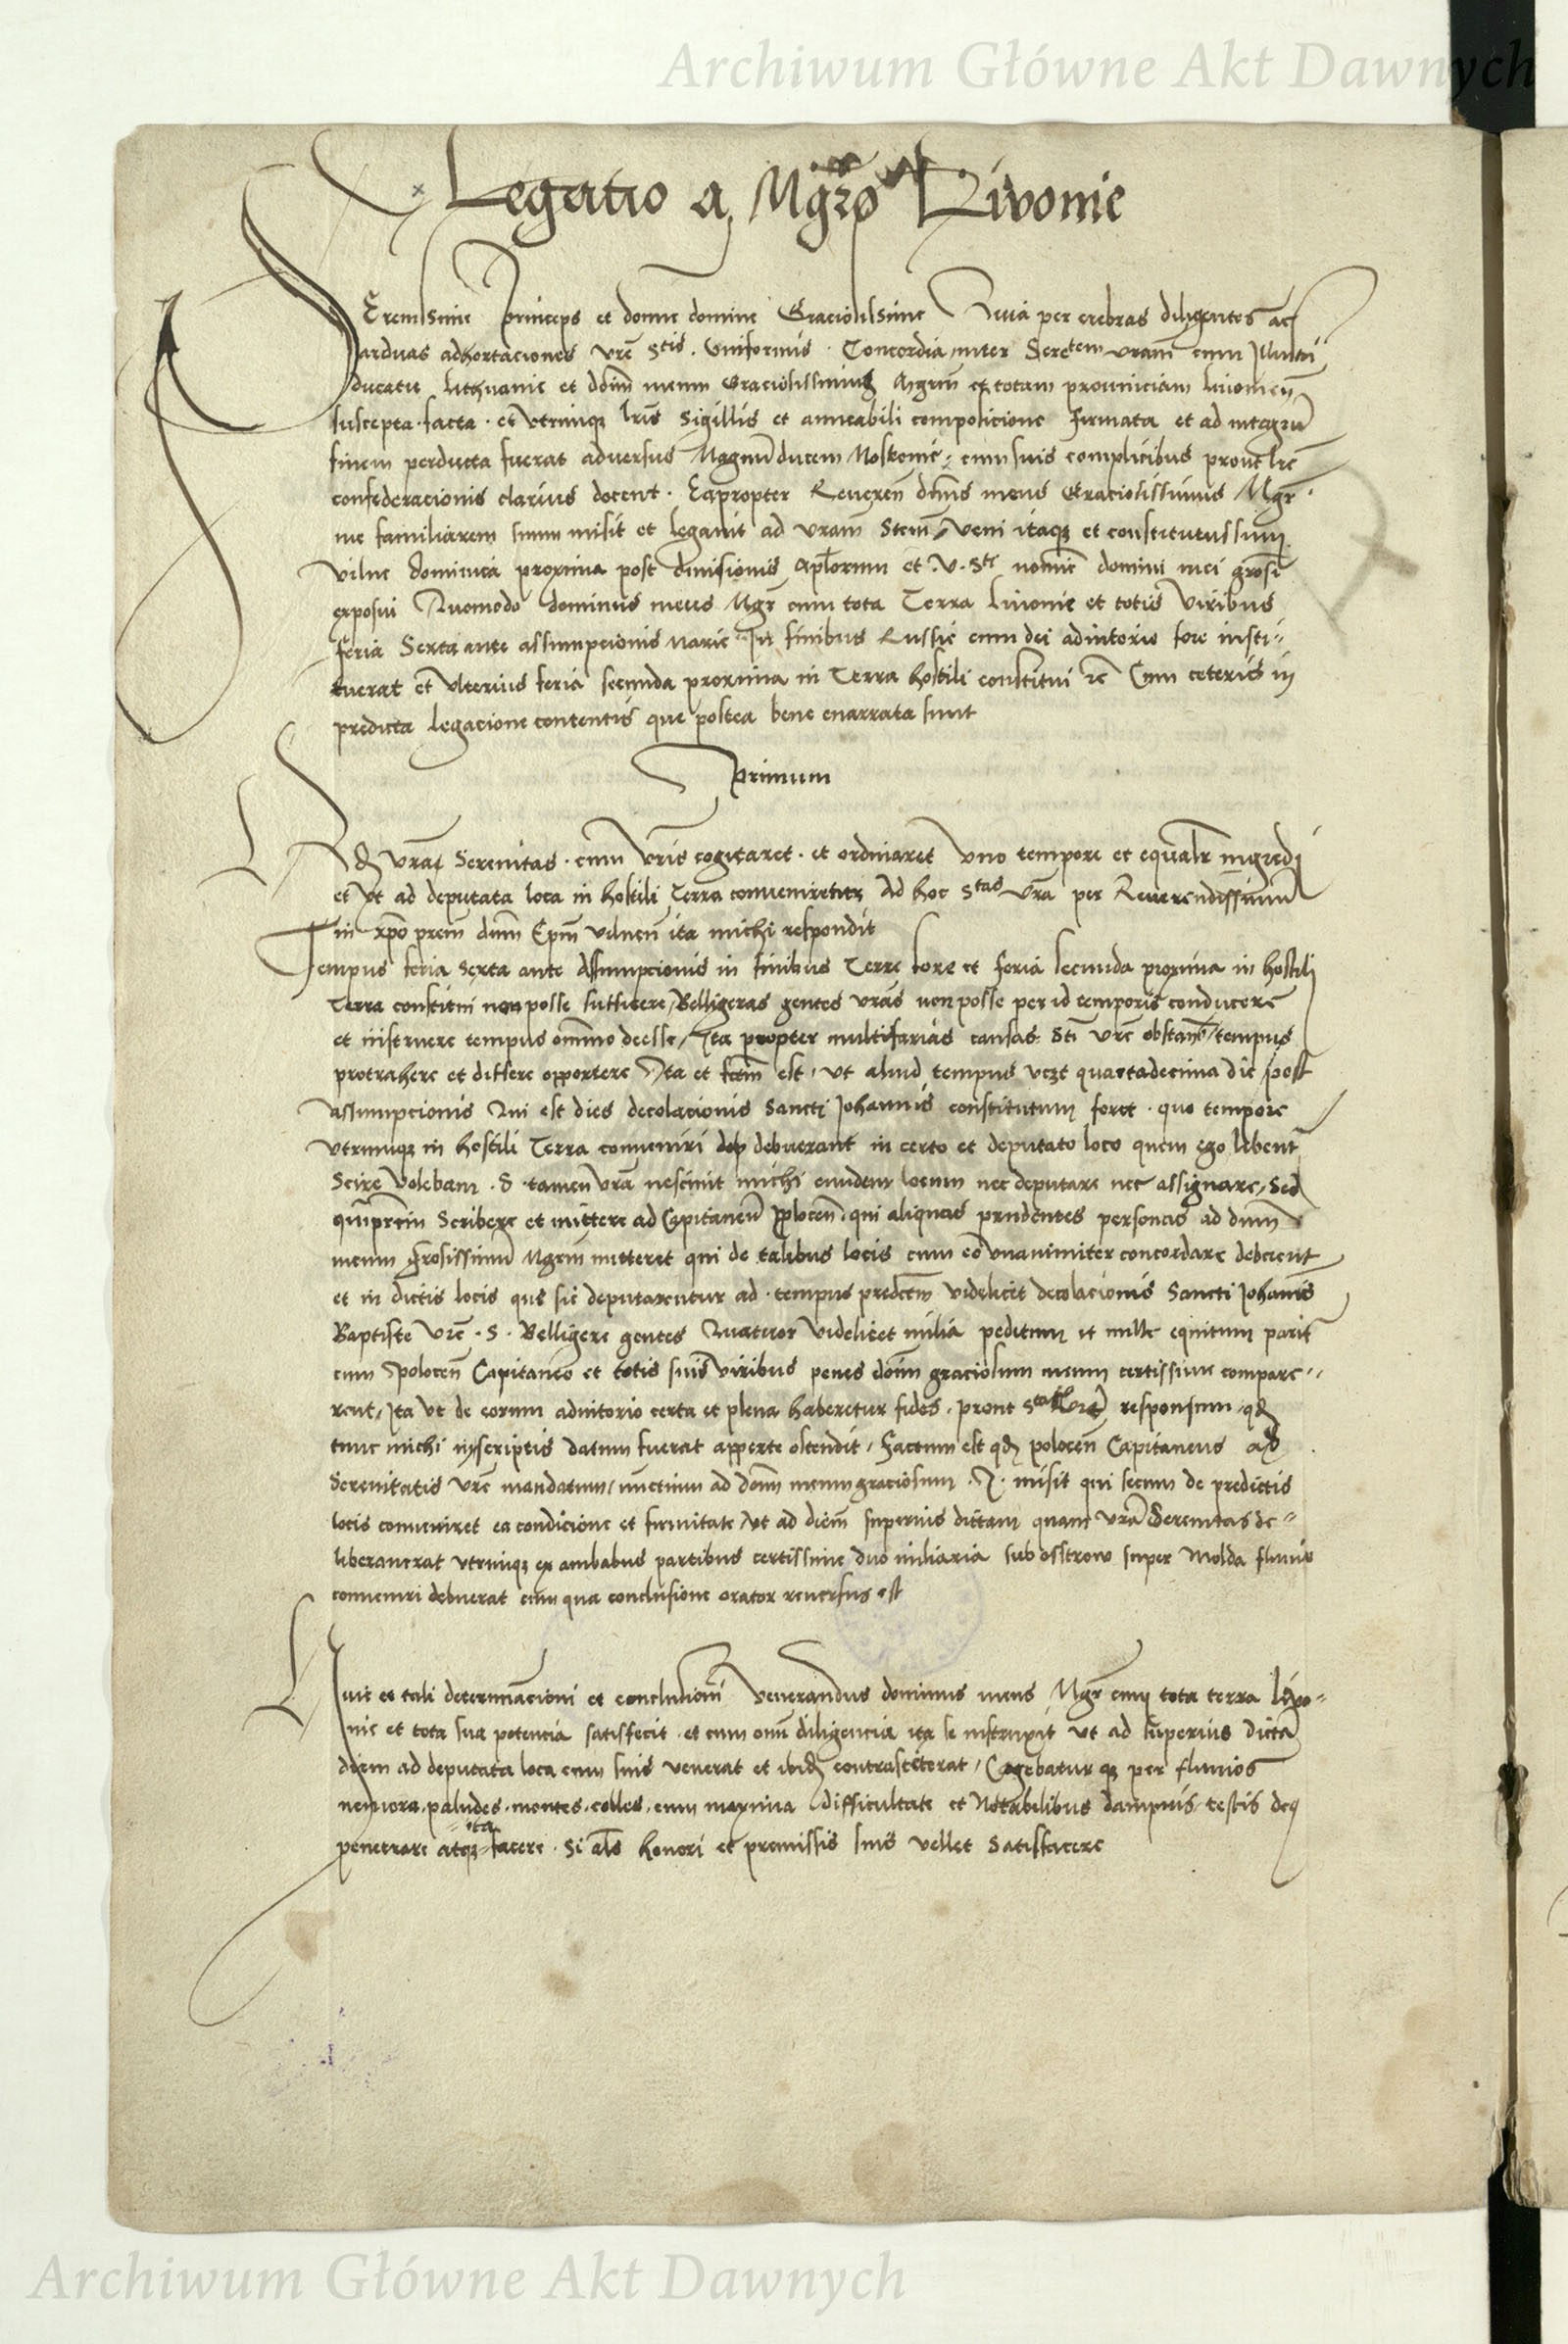 Archiwum Główne Akt Dawnych
Legatio a Mgrō Livonie
Serenissime princeps et domne domine Graciosissime Quia per crebras diligentes ac
arduas adhortaciones vrē Stis. Uniformis Concordia inter Seretem vram cum Illustri
ducatu lithuanie et ddm meum Graciosissimum Mgrm et totam prouinciam liuonien
suscepta facta et vtrinqz lris Sigillis et amicabili composicione firmata et ad integrū
finem perducta fuerat aduersus Magnū ducem Moskouie cum suis complicibus prout lrē
confederacionis clarius docent. Eapropter Reueren dns meus Graciosissimus Mgr
me familiarem suum misit et legauit ad vram Stem, Veni itaqz et constitutus sum
Vilne dominica proxima post diuisionis Aplorum et V. Sti nomie domini mei grosi
exposui Quomodo dominus meus Mgr cum tota Terra liuonie et totis Viribus
feria Sexta ante assumpcionis Marie In finibus Russie cum dei adiutorio fore insti-
tuerat et Vlterius feria secunda proxima in Terra hostili constitui rc Cum ceteris in
predicta legacione contentis que postea bene enarrata sunt
Primum
Qd Vrā Serenitas cum Vris cogitaret et ordinaret Vno tempore et equalr ingredi
et Vt ad deputata loca in hostili Terra conueniretur Ad hoc Stas Vrā per Reuerendissimū
in xpo prem dnm Epm Vilnen ita michi respondit
Tempus feria Sexta ante Assumpcionis in finibus Terre fore et feria secunda proxima in hostili
Terra constitui non posse sufficere, Belligeras gentes vras non posse per id temporis conducere
et instruere tempus omnino deesse, Ita propter multifarias causas Sti Vrē obstan tempus
protrahere et differe opportere Ita et fctm est, Vt aliud tempus vczt quartadecima die post
Assumpcionis Qui est dies decolacionis Sancti Johannis constitutum foret quo tempore
Vtrinqz in hostili Terra conueniri deb debuerant in certo et deputato loco quem ego libent
Scire Volebam. S tamen Vrā nesciuit michi eundem locum nec deputare nec assignare, Sed
Scribere et mittere ad Capitaneū plocen, qui aliquas prudentes personas ad dnm
meum grosissimū Mgrm mitteret qui de talibus locis cum eo Vnanimiter concordare deberent
et in dictis locis que sic deputarentur ad tempus predctm Videlicet decolacionis Sancti Johanis
Baptiste Vrē S. Belligere gentes Quatuor Videlicet milia peditum et mille equitum parit
cum Polocen Capitaneo et totis suis Viribus penes dnm graciosum meum certissime compare-
rent, Ita Vt de eorum adiutorio certa et plena haberetur fides, prout Stas Vrē responsum qd
tunc michi in scriptis datum fuerat apperte ostendit, Factum est qd polocen Capitaneus ad
Serenitatis Vrē mandatum, nunctium ad dnm meum graciosum misit qui secum de predictis
locis conueniret ea condicione et firmitate, Vt ad diem superius dictam quam Vrā Serenitas de-
liberauerat vtrinqz ex ambabus partibus certissime duo miliaria sub ostrow super Molda fluuio
conueniri debuerat cum qua conclusione orator reuersus est
Huic et tali determinacioni et conclusioni Venerandus dominus meus Mgr cum tota terra liuo-
nie et tota sua potencia satisfecit et cum omni diligencia ita se instruxit Vt ad superius dictā
diem ad deputata loca cum suis venerat et ibidē contrasteterat, Cogebatur qz per fluuios
nemora, paludes, montes, colles, cum maxima difficultate et Notabilibus dampnis testis deq
penetrare atqz ita facere Si als honori et premissis suis vellet Satisfacere
Archiwum Główne Akt Dawnych